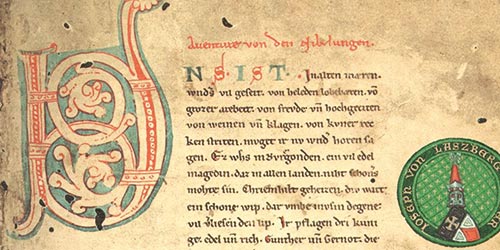 Auenture von den Nibelungen.
UNS IST. In alten mæren.
wnđs vil geseit. von heleden lobebæren. võ
grozer arebeit. von frevde vñ hochgeciten
von weinen vñ klagen. von kvner rec
ken striten. mvget ir nv wnđ horen sa
gen. Ez whs in Bvrgonden. ein vil edel
magedin. daz in allen landen. niht schoners
mohte sin. Chriemhilt geheizen. div wart
ein schone wip. dar vmbe mvsin degene
vil vliesen den lip. Ir pflagen dri kuni
ge edel vñ rich. Gunther vñ Gernot. die
JOSEPH VON LASZBERG